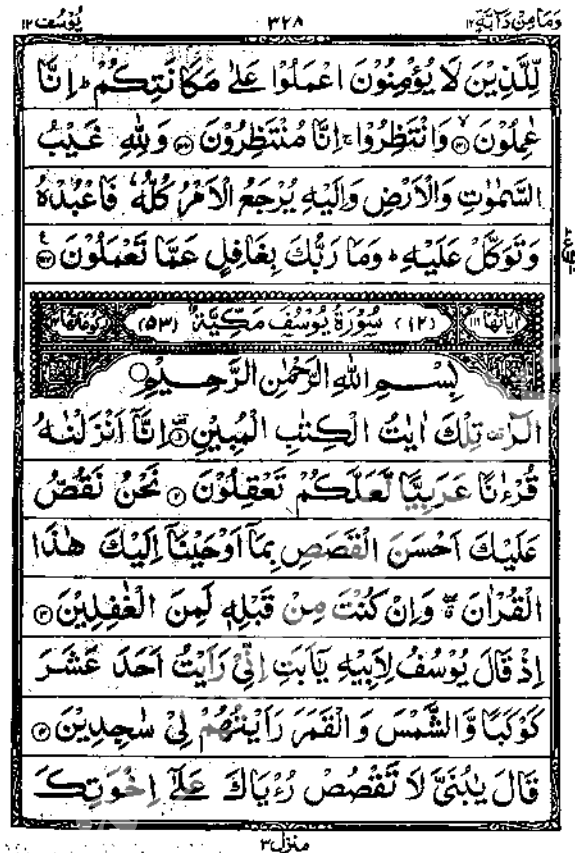 وَمَا مِنْ دَآبَّةٍ ١٢ ٣٢٨ يُوْسُف ١٢
لِّلَّذِيْنَ لَا يُؤْمِنُوْنَ اعْمَلُوْا عَلٰى مَكَانَتِكُمْ ؕ اِنَّا
عٰمِلُوْنَ ۙ﴿۱۲۱﴾ وَانْتَظِرُوْا ۚ اِنَّا مُنْتَظِرُوْنَ ﴿۱۲۲﴾ وَلِلّٰهِ غَيْبُ
السَّمٰوٰتِ وَالْاَرْضِ وَاِلَيْهِ يُرْجَعُ الْاَمْرُ كُلُّهٗ فَاعْبُدْهُ
وَتَوَكَّلْ عَلَيْهِ ؕ وَمَا رَبُّكَ بِغَافِلٍ عَمَّا تَعْمَلُوْنَ ﴿۱۲۳﴾
اٰيَاتُهَا ١١١ (١٢) سُوْرَةُ يُوْسُفَ مَكِّيَّةٌ (٥٣) رُكُوْعَاتُهَا
بِسْمِ اللّٰهِ الرَّحْمٰنِ الرَّحِيْمِ
الٓرٰ ۫ تِلْكَ اٰيٰتُ الْكِتٰبِ الْمُبِيْنِ ﴿۱﴾ اِنَّاۤ اَنْزَلْنٰهُ
قُرْءٰنًا عَرَبِيًّا لَّعَلَّكُمْ تَعْقِلُوْنَ ﴿۲﴾ نَحْنُ نَقُصُّ
عَلَيْكَ اَحْسَنَ الْقَصَصِ بِمَاۤ اَوْحَيْنَاۤ اِلَيْكَ هٰذَا
الْقُرْاٰنَ ۖ وَاِنْ كُنْتَ مِنْ قَبْلِهٖ لَمِنَ الْغٰفِلِيْنَ ﴿۳﴾
اِذْ قَالَ يُوْسُفُ لِاَبِيْهِ يٰۤاَبَتِ اِنِّيْ رَاَيْتُ اَحَدَ عَشَرَ
كَوْكَبًا وَّالشَّمْسَ وَالْقَمَرَ رَاَيْتُهُمْ لِيْ سٰجِدِيْنَ ﴿۴﴾
قَالَ يٰبُنَيَّ لَا تَقْصُصْ رُءْيَاكَ عَلٰۤى اِخْوَتِكَ
منزل ٣